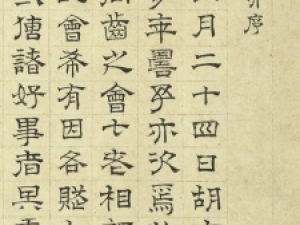 并序
月二十四日胡
年壽予亦次焉
齒之會七老相
會希有因各賦
傳諸好事者其